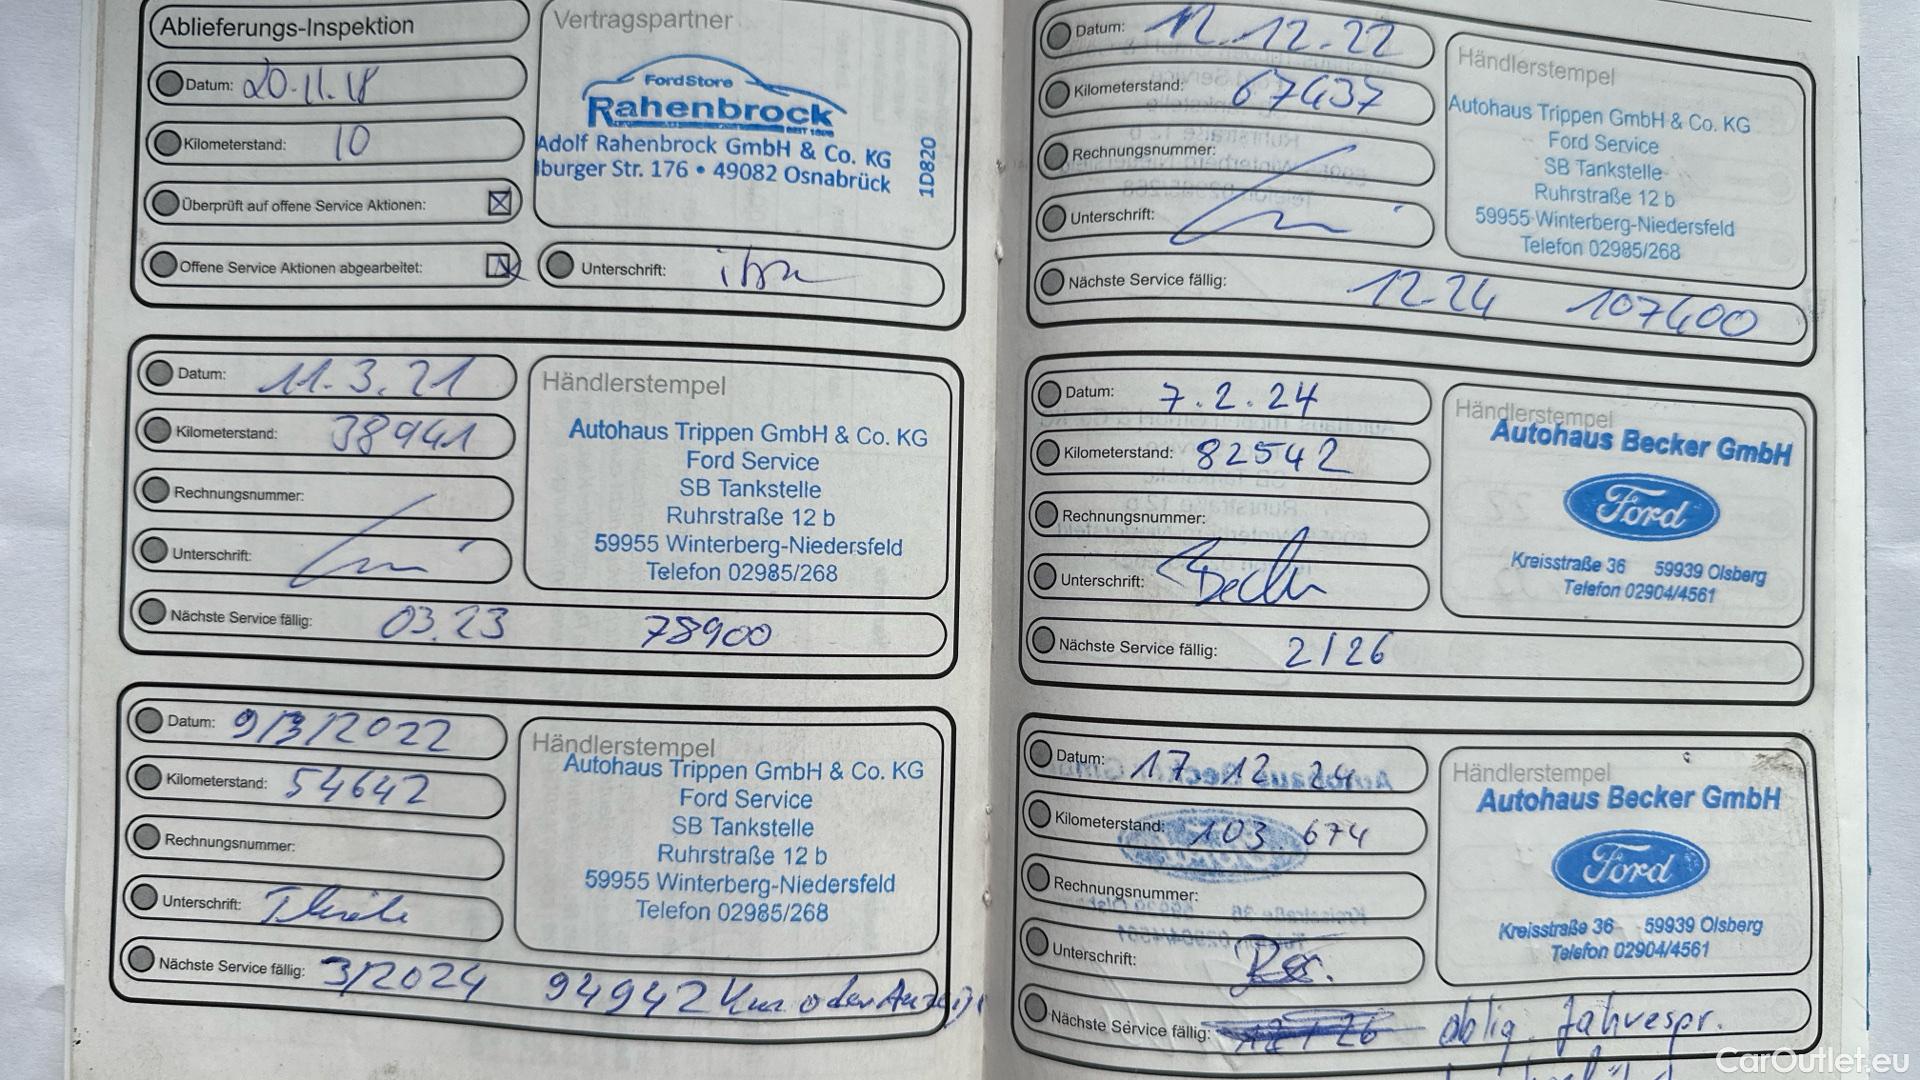 Ablieferungs-Inspektion
Datum: 20.11.18
Kilometerstand: 10
Überprüft auf offene Service Aktionen:
Offene Service Aktionen abgearbeitet:
Vertragspartner
FordStore
Rahenbrock
Adolf Rahenbrock GmbH & Co. KG
Iburger Str. 176 • 49082 Osnabrück
1D820
Unterschrift:
Datum: 11.3.21
Kilometerstand: 38941
Rechnungsnummer:
Unterschrift:
Nächste Service fällig: 03.23 78900
Händlerstempel
Autohaus Trippen GmbH & Co. KG
Ford Service
SB Tankstelle
Ruhrstraße 12 b
59955 Winterberg-Niedersfeld
Telefon 02985/268
Datum: 9/3/2022
Kilometerstand: 54642
Rechnungsnummer:
Unterschrift:
Nächste Service fällig: 3/2024 94942 Km oder Anzeige
Händlerstempel
Autohaus Trippen GmbH & Co. KG
Ford Service
SB Tankstelle
Ruhrstraße 12 b
59955 Winterberg-Niedersfeld
Telefon 02985/268
Datum: 12.12.22
Kilometerstand: 67437
Rechnungsnummer:
Unterschrift:
Nächste Service fällig: 12.24 107400
Händlerstempel
Autohaus Trippen GmbH & Co. KG
Ford Service
SB Tankstelle
Ruhrstraße 12 b
59955 Winterberg-Niedersfeld
Telefon 02985/268
Datum: 7.2.24
Kilometerstand: 82542
Rechnungsnummer:
Unterschrift:
Nächste Service fällig: 2/26
Händlerstempel
Autohaus Becker GmbH
Ford
Kreisstraße 36 59939 Olsberg
Telefon 02904/4561
Datum: 17 12 24
Kilometerstand: 103 674
Rechnungsnummer:
Unterschrift:
Nächste Service fällig: 12/26 oblig. Jahrespr.
Händlerstempel
Autohaus Becker GmbH
Ford
Kreisstraße 36 59939 Olsberg
Telefon 02904/4561
CarOutlet.eu